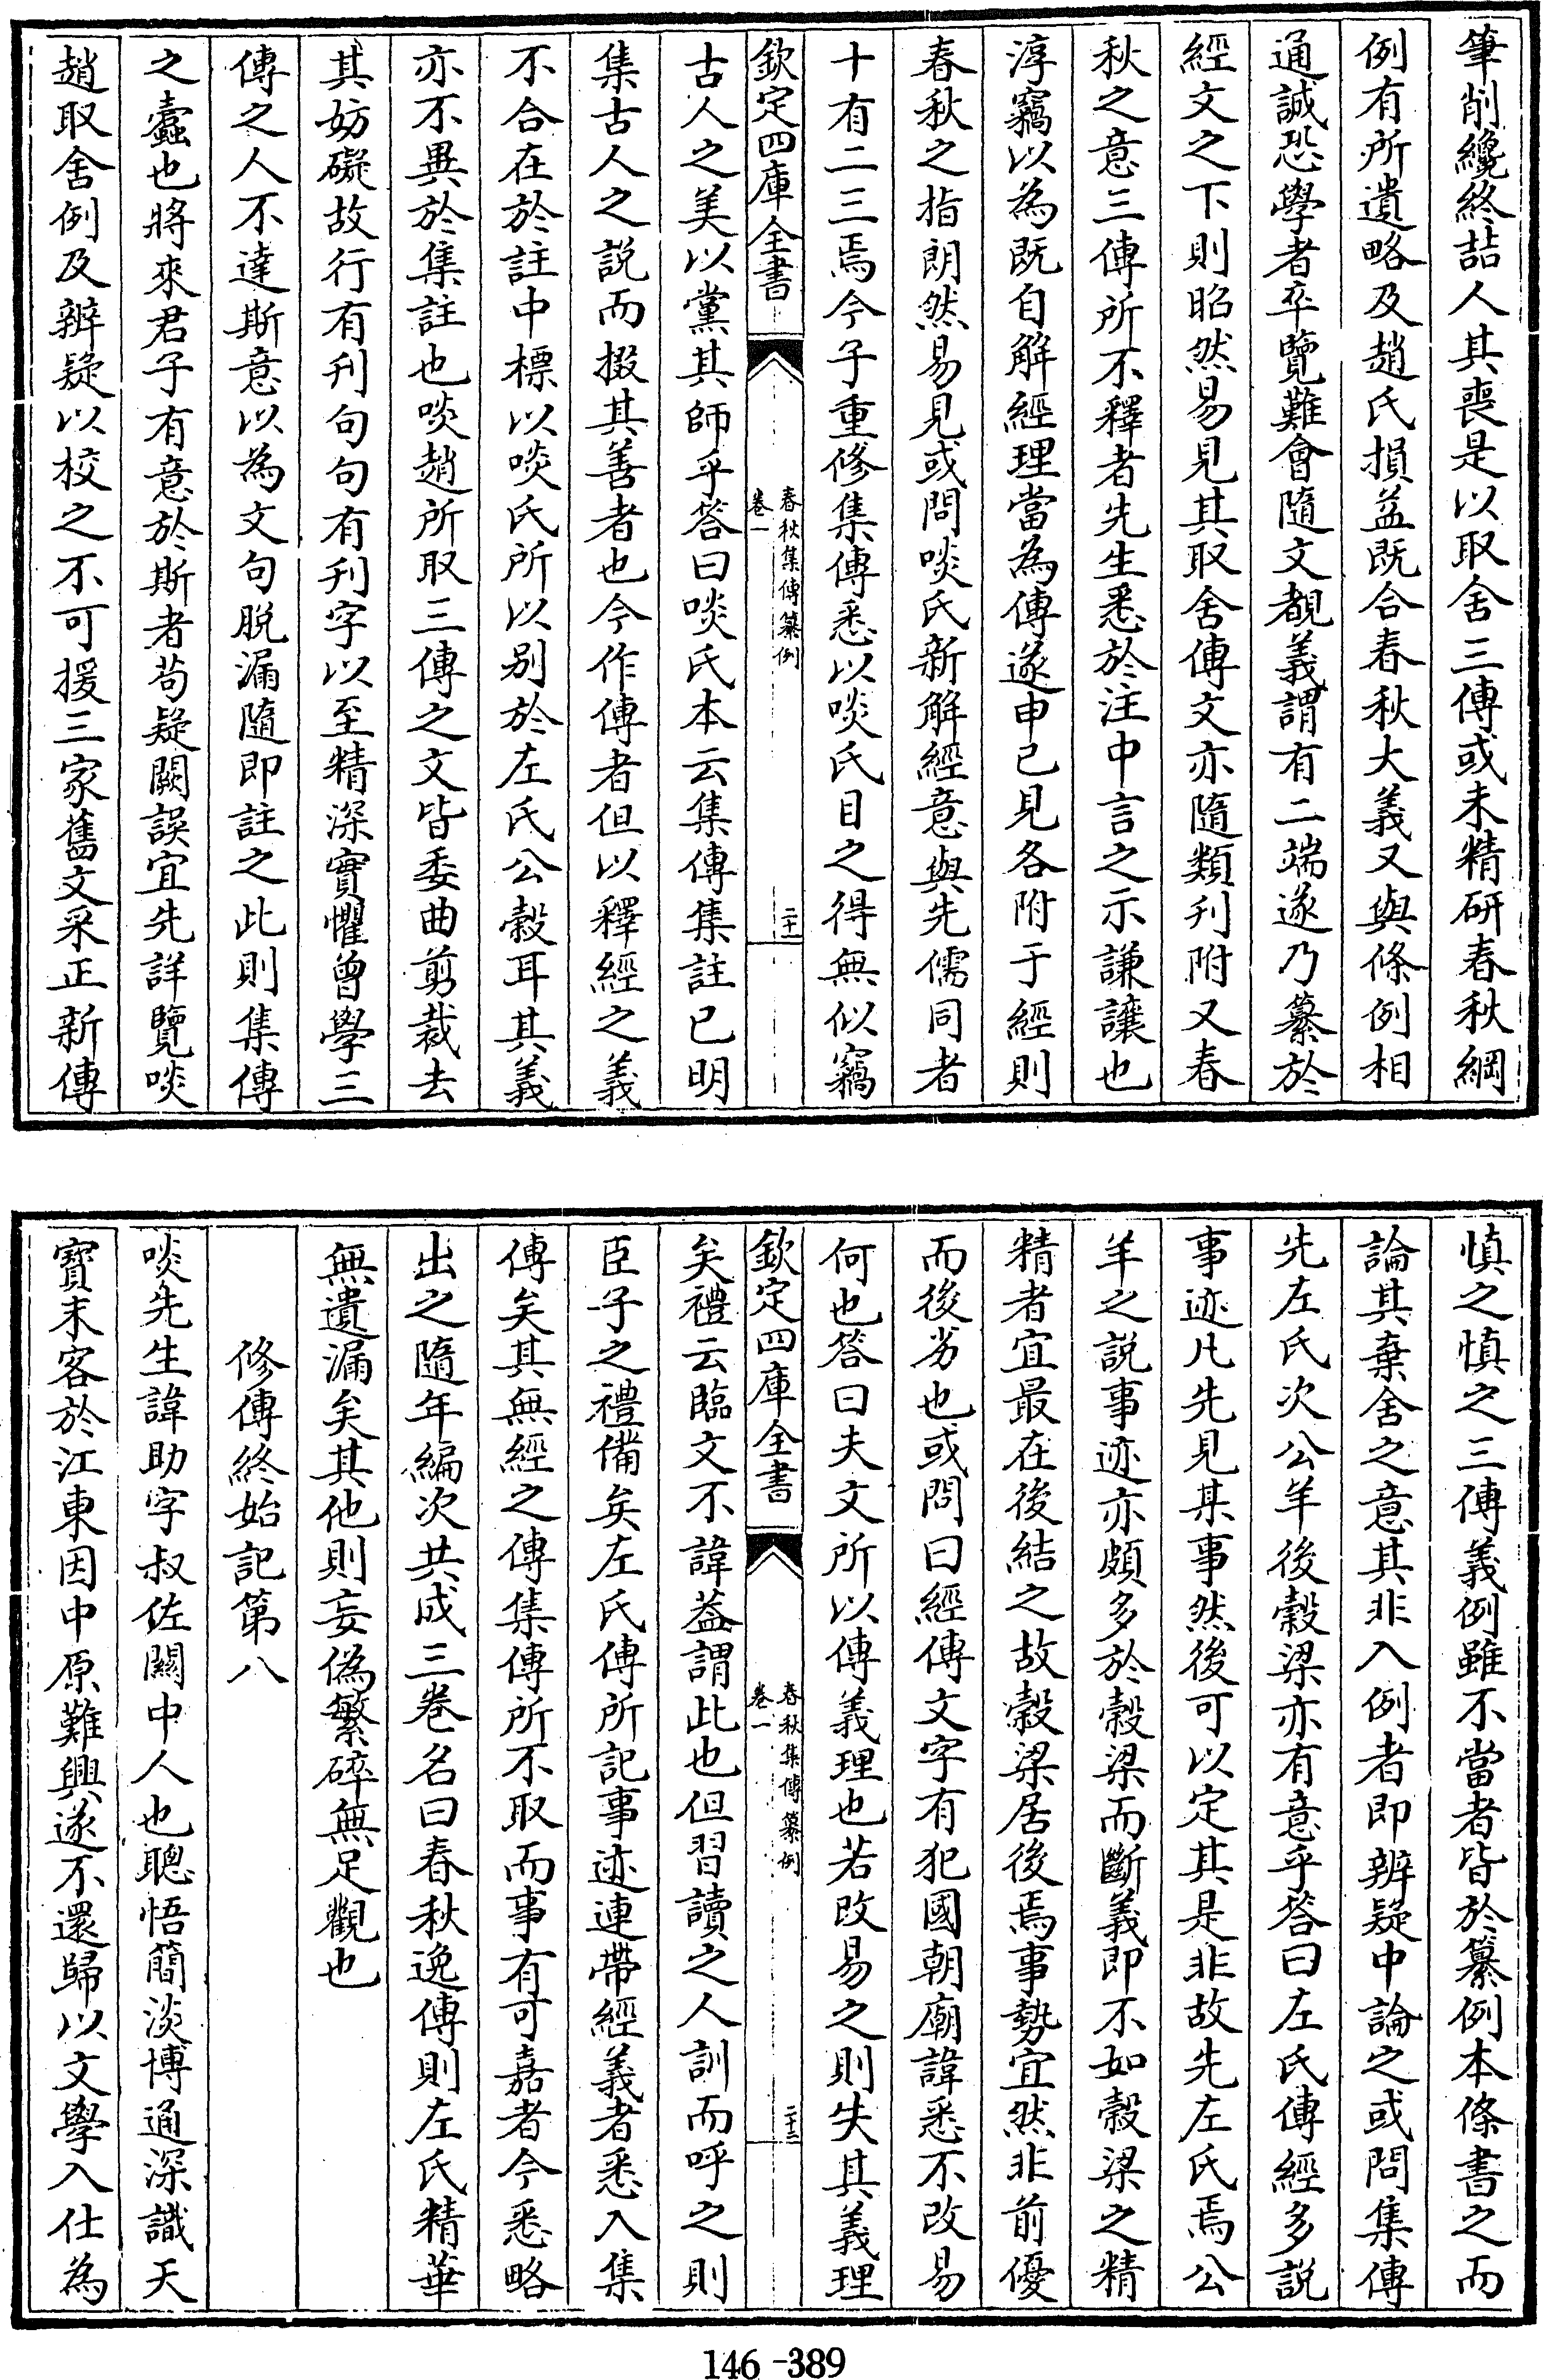 筆削纔終喆人其喪是以取舍三傳或未精研春秋綱
例有所遺略及趙氏損益既合春秋大義又與條例相
通誠恐學者卒覽難會隨文覩義謂有二端遂乃纂於
經文之下則昭然易見其取舍傳文亦隨類刋附又春
秋之意三傳所不釋者先生悉於注中言之示謙讓也
淳竊以為既自解經理當為傳遂申己見各附于經則
春秋之指朗然易見或問啖氏新解經意與先儒同者
十有二三焉今子重修集傳悉以啖氏目之得無似竊
欽定四庫全書
春秋集傳纂例
卷一
二十一
古人之美以黨其師乎答曰啖氏本云集傳集註已明
集古人之說而掇其善者也今作傳者但以釋經之義
不合在於註中標以啖氏所以別於左氏公榖耳其義
亦不異於集註也啖趙所取三傳之文皆委曲剪裁去
其妨礙故行有刋句句有刋字以至精深實懼曾學三
傳之人不達斯意以為文句脫漏隨即註之此則集傳
之蠹也將來君子有意於斯者苟疑闕誤宜先詳覽啖
趙取舍例及辨疑以校之不可援三家舊文采正新傳
慎之慎之三傳義例雖不當者皆於纂例本條書之而
論其棄舍之意其非入例者即辨疑中論之或問集傳
先左氏次公羊後榖梁亦有意乎答曰左氏傳經多說
事迹凡先見某事然後可以定其是非故先左氏焉公
羊之說事迹亦頗多於榖梁而斷義即不如榖梁之精
精者宜最在後結之故榖梁居後焉事勢宜然非前優
而後劣也或問曰經傳文字有犯國朝廟諱悉不改易
何也答曰夫文所以傳義理也若改易之則失其義理
欽定四庫全書
春秋集傳纂例
卷一
二十二
矣禮云臨文不諱葢謂此也但習讀之人訓而呼之則
臣子之禮備矣左氏傳所記事迹連帶經義者悉入集
傳矣其無經之傳集傳所不取而事有可嘉者今悉略
出之隨年編次共成三卷名曰春秋逸傳則左氏精華
無遺漏矣其他則妄偽繁碎無足觀也
修傳終始記第八
啖先生諱助字叔佐關中人也聰悟簡淡博通深識天
寶末客於江東因中原難興遂不還歸以文學入仕為
146-389